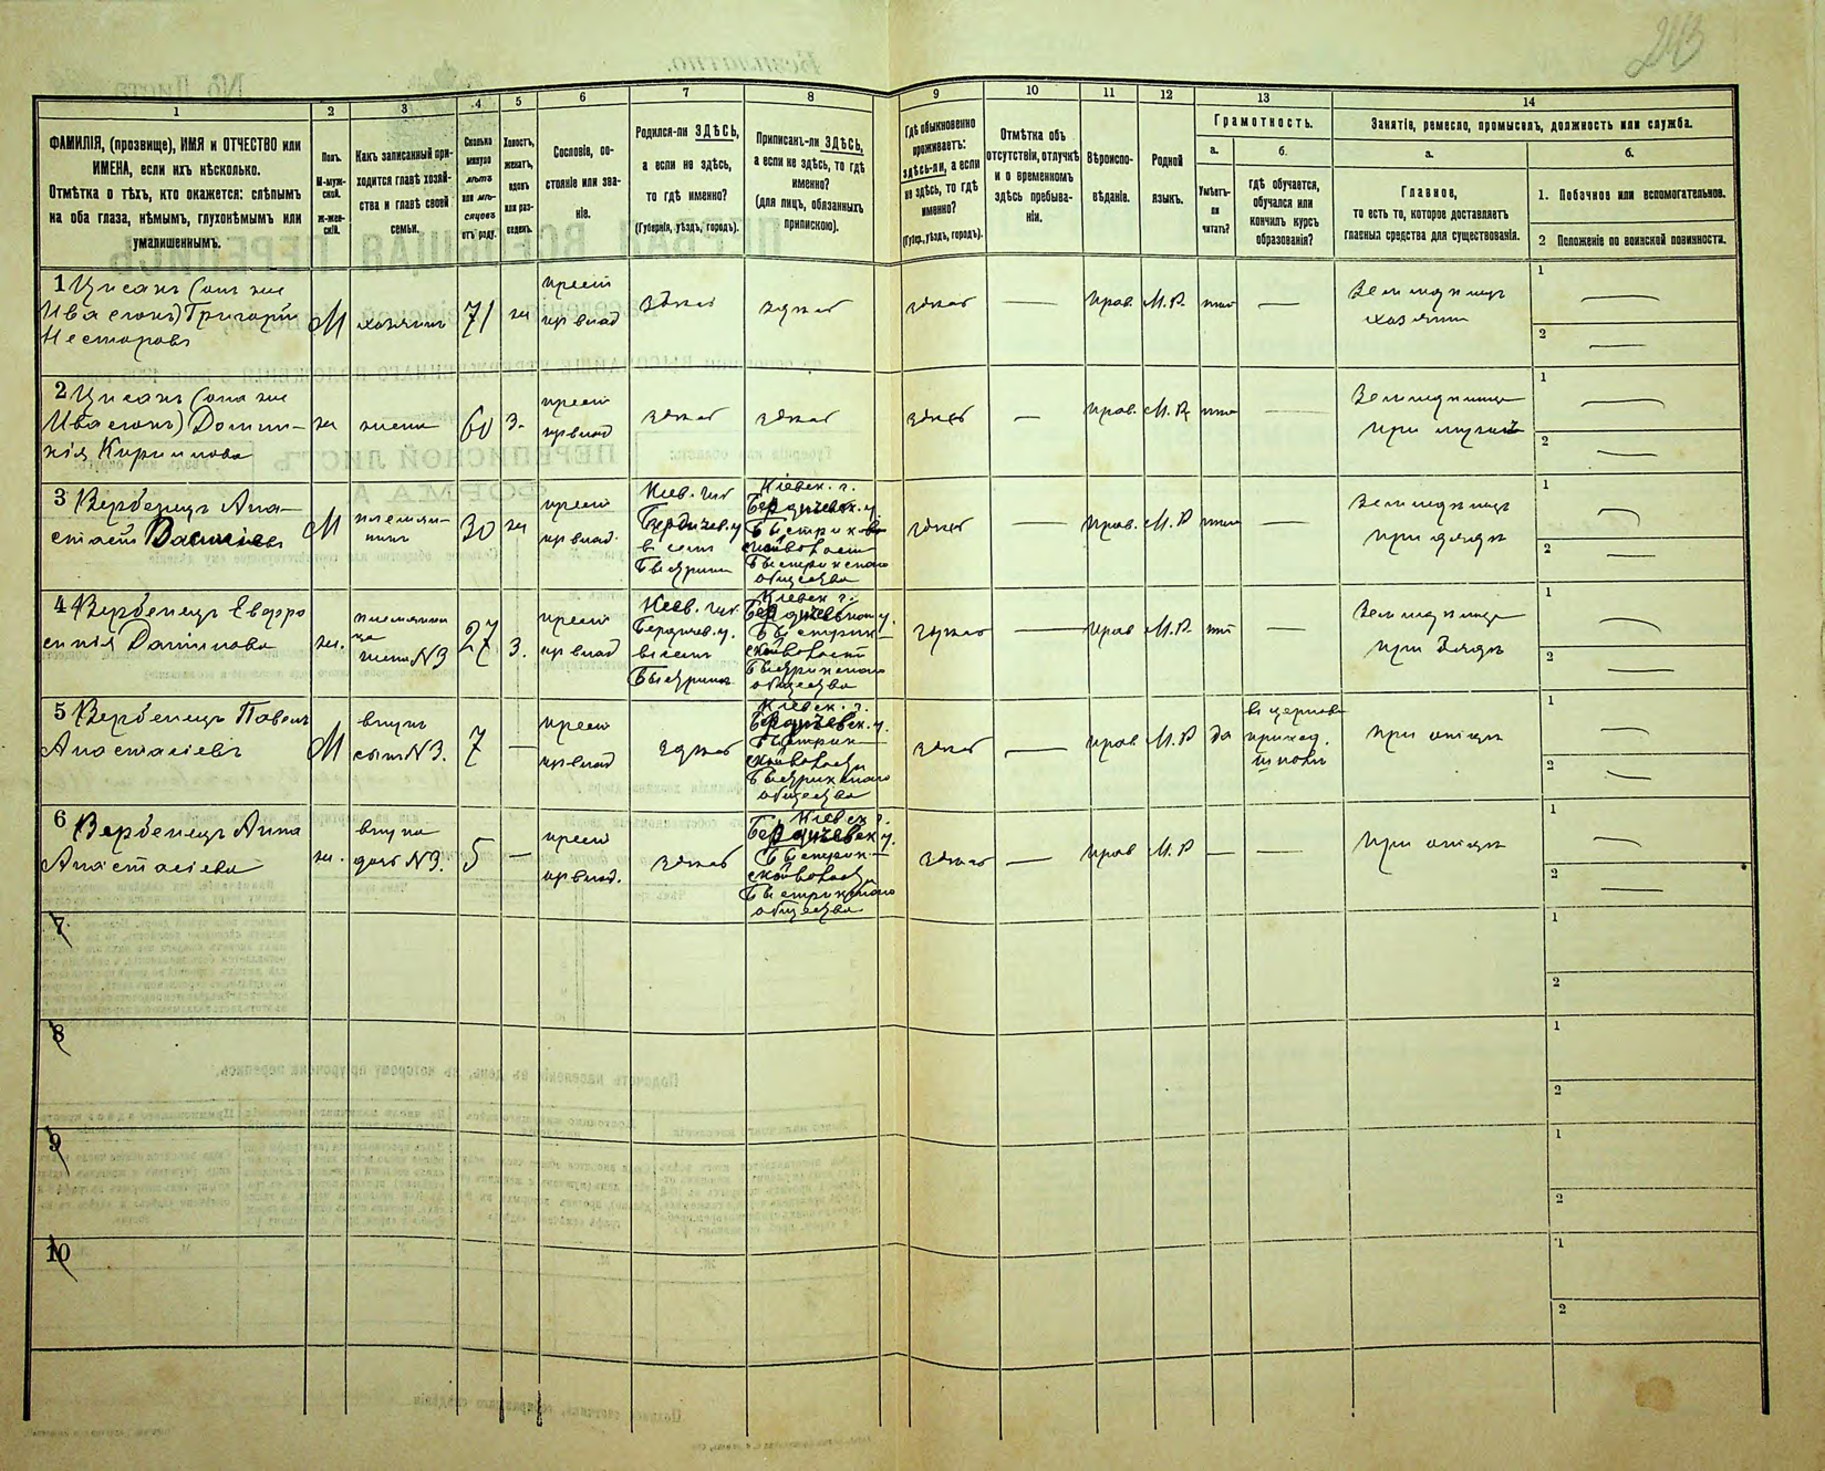 243
1
2
3
4
5
6
7
8
9
10
11
12
13
14
ФАМИЛІЯ, (прозвище), ИМЯ и ОТЧЕСТВО или
ИМЕНА, если ихъ нѣсколько.
Отмѣтка о тѣхъ, кто окажется: слѣпымъ
на оба глаза, нѣмымъ, глухонѣмымъ или
умалишеннымъ.
Полъ.
М-муж-
ской.
ж-жен-
скій.
Какъ записанный при-
ходится главѣ хозяй-
ства и главѣ своей
семьи.
Сколько
минуло
лѣтъ
или мѣ-
сяцевъ
отъ роду.
Холостъ,
женатъ,
вдовъ
или раз-
веденъ.
Сословіе, со-
стояніе или зва-
ніе.
Родился-ли ЗДѢСЬ,
а если не здѣсь,
то гдѣ именно?
(Губернія, уѣздъ, городъ).
Приписанъ-ли ЗДѢСЬ,
а если не здѣсь, то гдѣ
именно?
(для лицъ, обязанныхъ
припискою).
Гдѣ обыкновенно
проживаетъ:
здѣсь-ли, а если
не здѣсь, то гдѣ
именно?
(Губер., уѣздъ, городъ).
Отмѣтка объ
отсутствіи, отлучкѣ
и о временномъ
здѣсь пребыва-
ніи.
Вѣроиспо-
вѣданіе.
Родной
языкъ.
Грамотность.
а.
Умѣетъ-
ли
читать?
б.
гдѣ обучается,
обучался или
кончилъ курсъ
образованія?
Занятіе, ремесло, промыселъ, должность или служба.
а.
Главное,
то есть то, которое доставляетъ
главныя средства для существованія.
б.
1. Побочное или вспомогательное.
2 Положеніе по воинской повинности.
1 Цисанъ (онъ же
Ивасюкъ) Григорій
Несторовъ
М
хозяинъ
71
ж
крест
из влад
здѣсь
здѣсь
здѣсь
—
прав.
М. Р.
нѣт
—
Земледѣлецъ
хозяинъ
1 —
2 —
2 Цисанъ (она же
Ивасюкъ) Доми-
кія Кирилова
ж
жена
60
з.
крест
из влад
здѣсь
здѣсь
здѣсь
—
прав.
М. Р.
нѣт
—
Земледѣлица
при мужѣ
1 —
2 —
3 Вербенецъ Ана-
стасій Васильевъ
М
племян-
никъ
30
ж
крест
из влад.
Кіев. губ
Бердичев. у
в селѣ
Быстрикъ
Кіевск. г.
Бердичевск. у.
Быстриков-
ской волости
Быстрикского
общества
здѣсь
—
прав.
М. Р
нѣт
—
Земледѣлецъ
при дядѣ
1 —
2 —
4 Вербенецъ Евфро
синія Данилова
ж.
жена №3
27
з.
крест
из влад
Кіев. губ.
Бердичев. у.
в селѣ
Быстрикъ
Кіевск г.
Бердичевском у.
Быстрик-
ской волости
Быстрикского
общества
здѣсь
—
прав
М. Р.
нѣт
—
Земледѣлица
при дядѣ
1 —
2 —
5 Вербенецъ Павелъ
Анастасіевъ
М
внукъ
сынъ №3.
7
—
крест
из влад
здѣсь
Кіевск. г.
Бердичевск. у.
Быстрик-
ской волости
Быстрикского
общества
здѣсь
—
прав
М. Р
да
в церков
приход.
школѣ
при отцѣ
1 —
2 —
6 Вербенецъ Анна
Анастасіева
ж.
внучка
дочь №3.
5
—
крест
из влад.
здѣсь
Кіевск г.
Бердичевск у.
Быстрик-
ской волости
Быстрикского
общества
здѣсь
—
прав
М. Р
—
—
при отцѣ
1 —
2 —
7
1
2
8
1
2
9
1
2
10
1
2